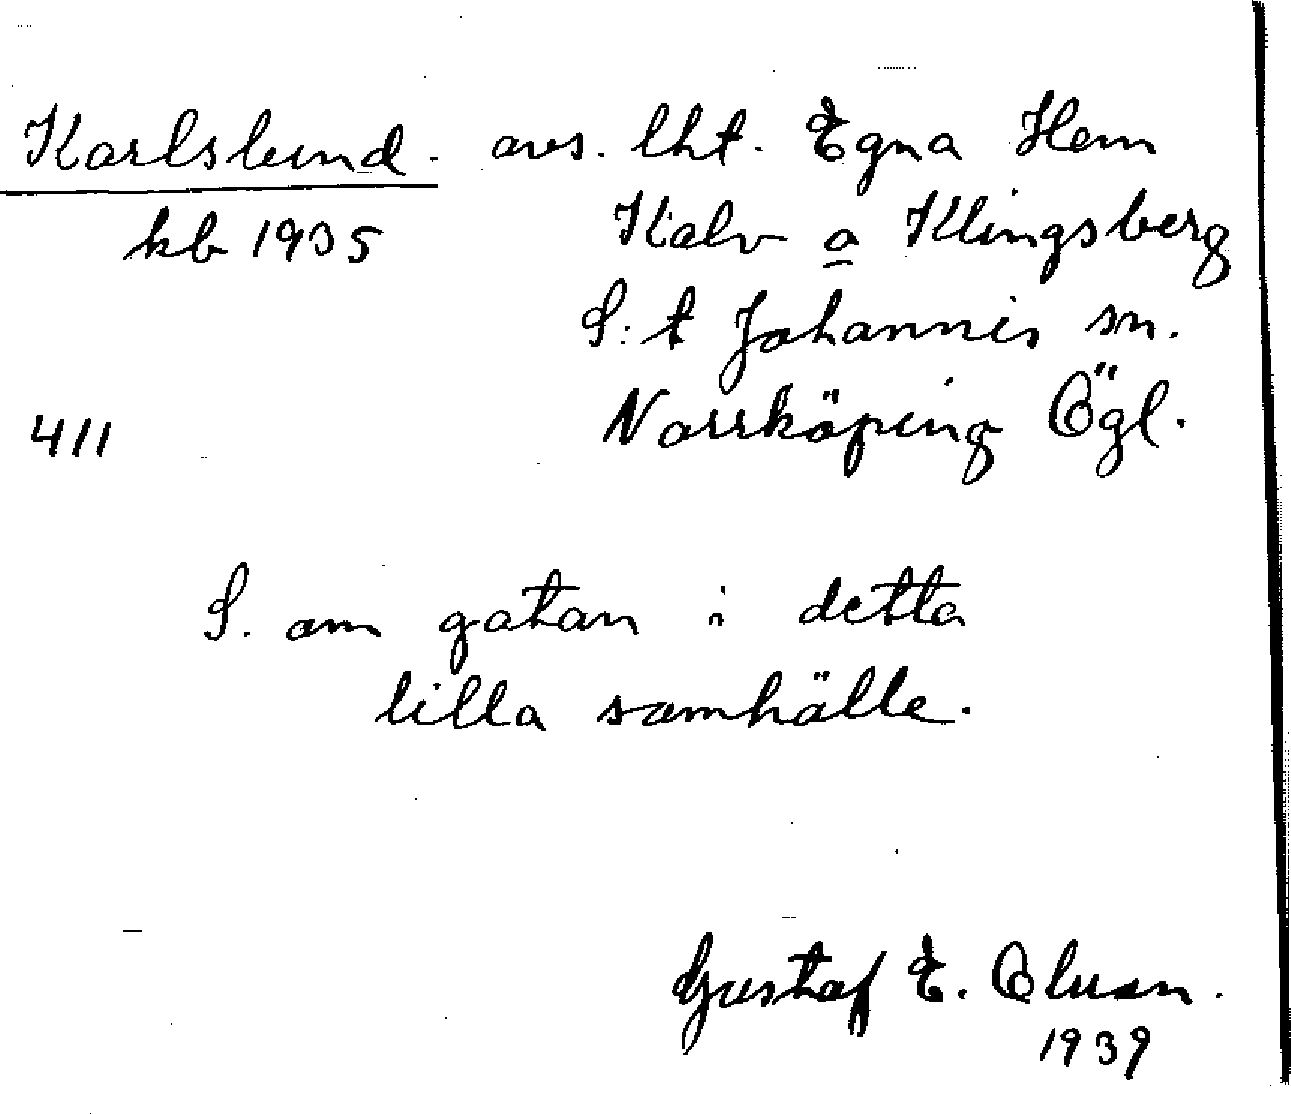 Karlslund. avs. lht. Egna Hem
kb 1935 Kalv a Klingsberg
S:t Johannis sn.
411 Norrköping Ögl.
S. om gatan i detta
lilla samhälle.
Gustaf E.
1939